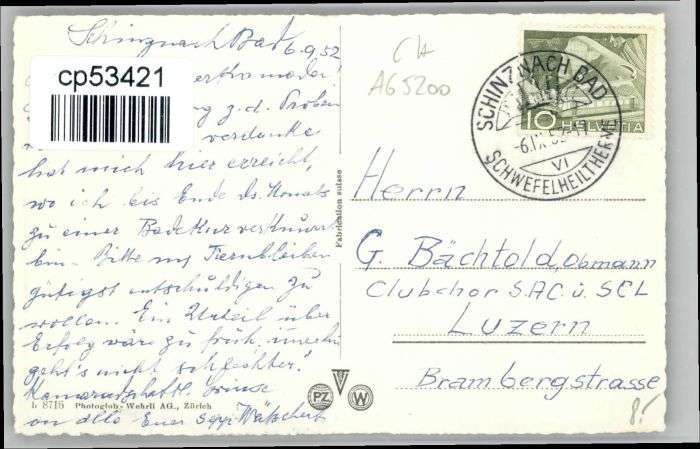 Schinznach Bad 6.9.52
cp53421
z.d. Proben
verdanke
hat mich hier erreicht,
wo ich bis Ende ds. Monats
zu einer Badekur
bin. Bitte my Fernbleiben
gütigst entschuldigen zu
wollen. Ein Urteil über
Erfolg wäre zu früh,
geht's nicht schlechter.
Grüsse
an alle Euer
L 8715 Photoglob-Wehrli AG., Zürich
Fabrication suisse
PZ W
CH
AG 5200
10 HELVETIA
SCHINZNACH BAD
-6.IX.52
VI
SCHWEFELHEILTHERME
Herrn
G. Bächtold, Obmann
Clubchor S.A.C. u. SCL
Luzern
Brambergstrasse
8.-